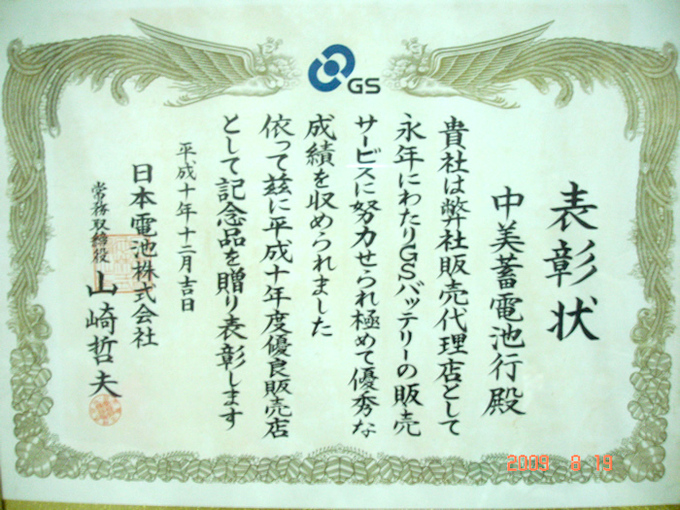 GS
表彰状
中美蓄電池行殿
貴社は弊社販売代理店として
永年にわたりGSバッテリーの販売
サービスに努力せられ極めて優秀な
成績を収められました
依って茲に平成十年度優良販売店
として記念品を贈り表彰します
平成十年十二月吉日
日本電池株式会社
常務取締役 山崎哲夫
2009 8 19